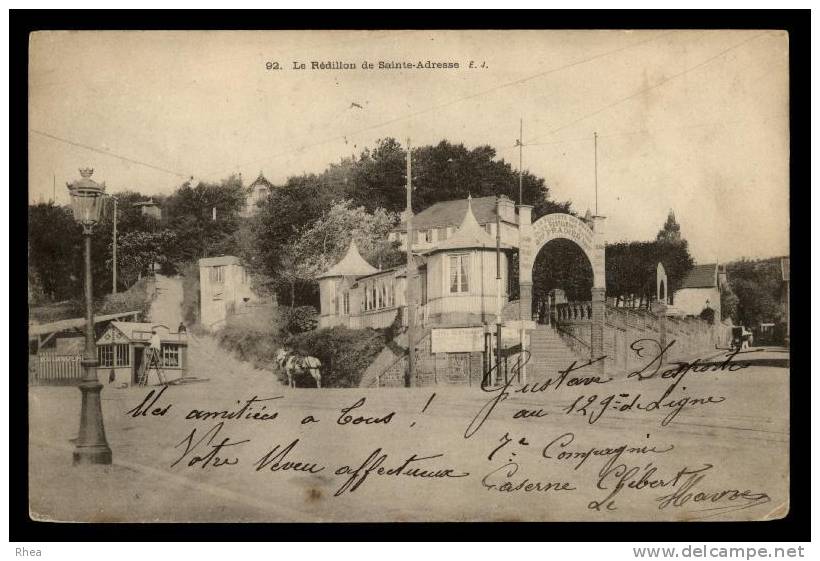 92. Le Rédillon de Sainte-Adresse E. J.
PRADIER
Mes amitiés a tous !
Votre Neveu affectueux
Gustave
au 129e de Ligne
7e Compagnie
Caserne Chibert
Le Havre
Rhea
www.delcampe.net